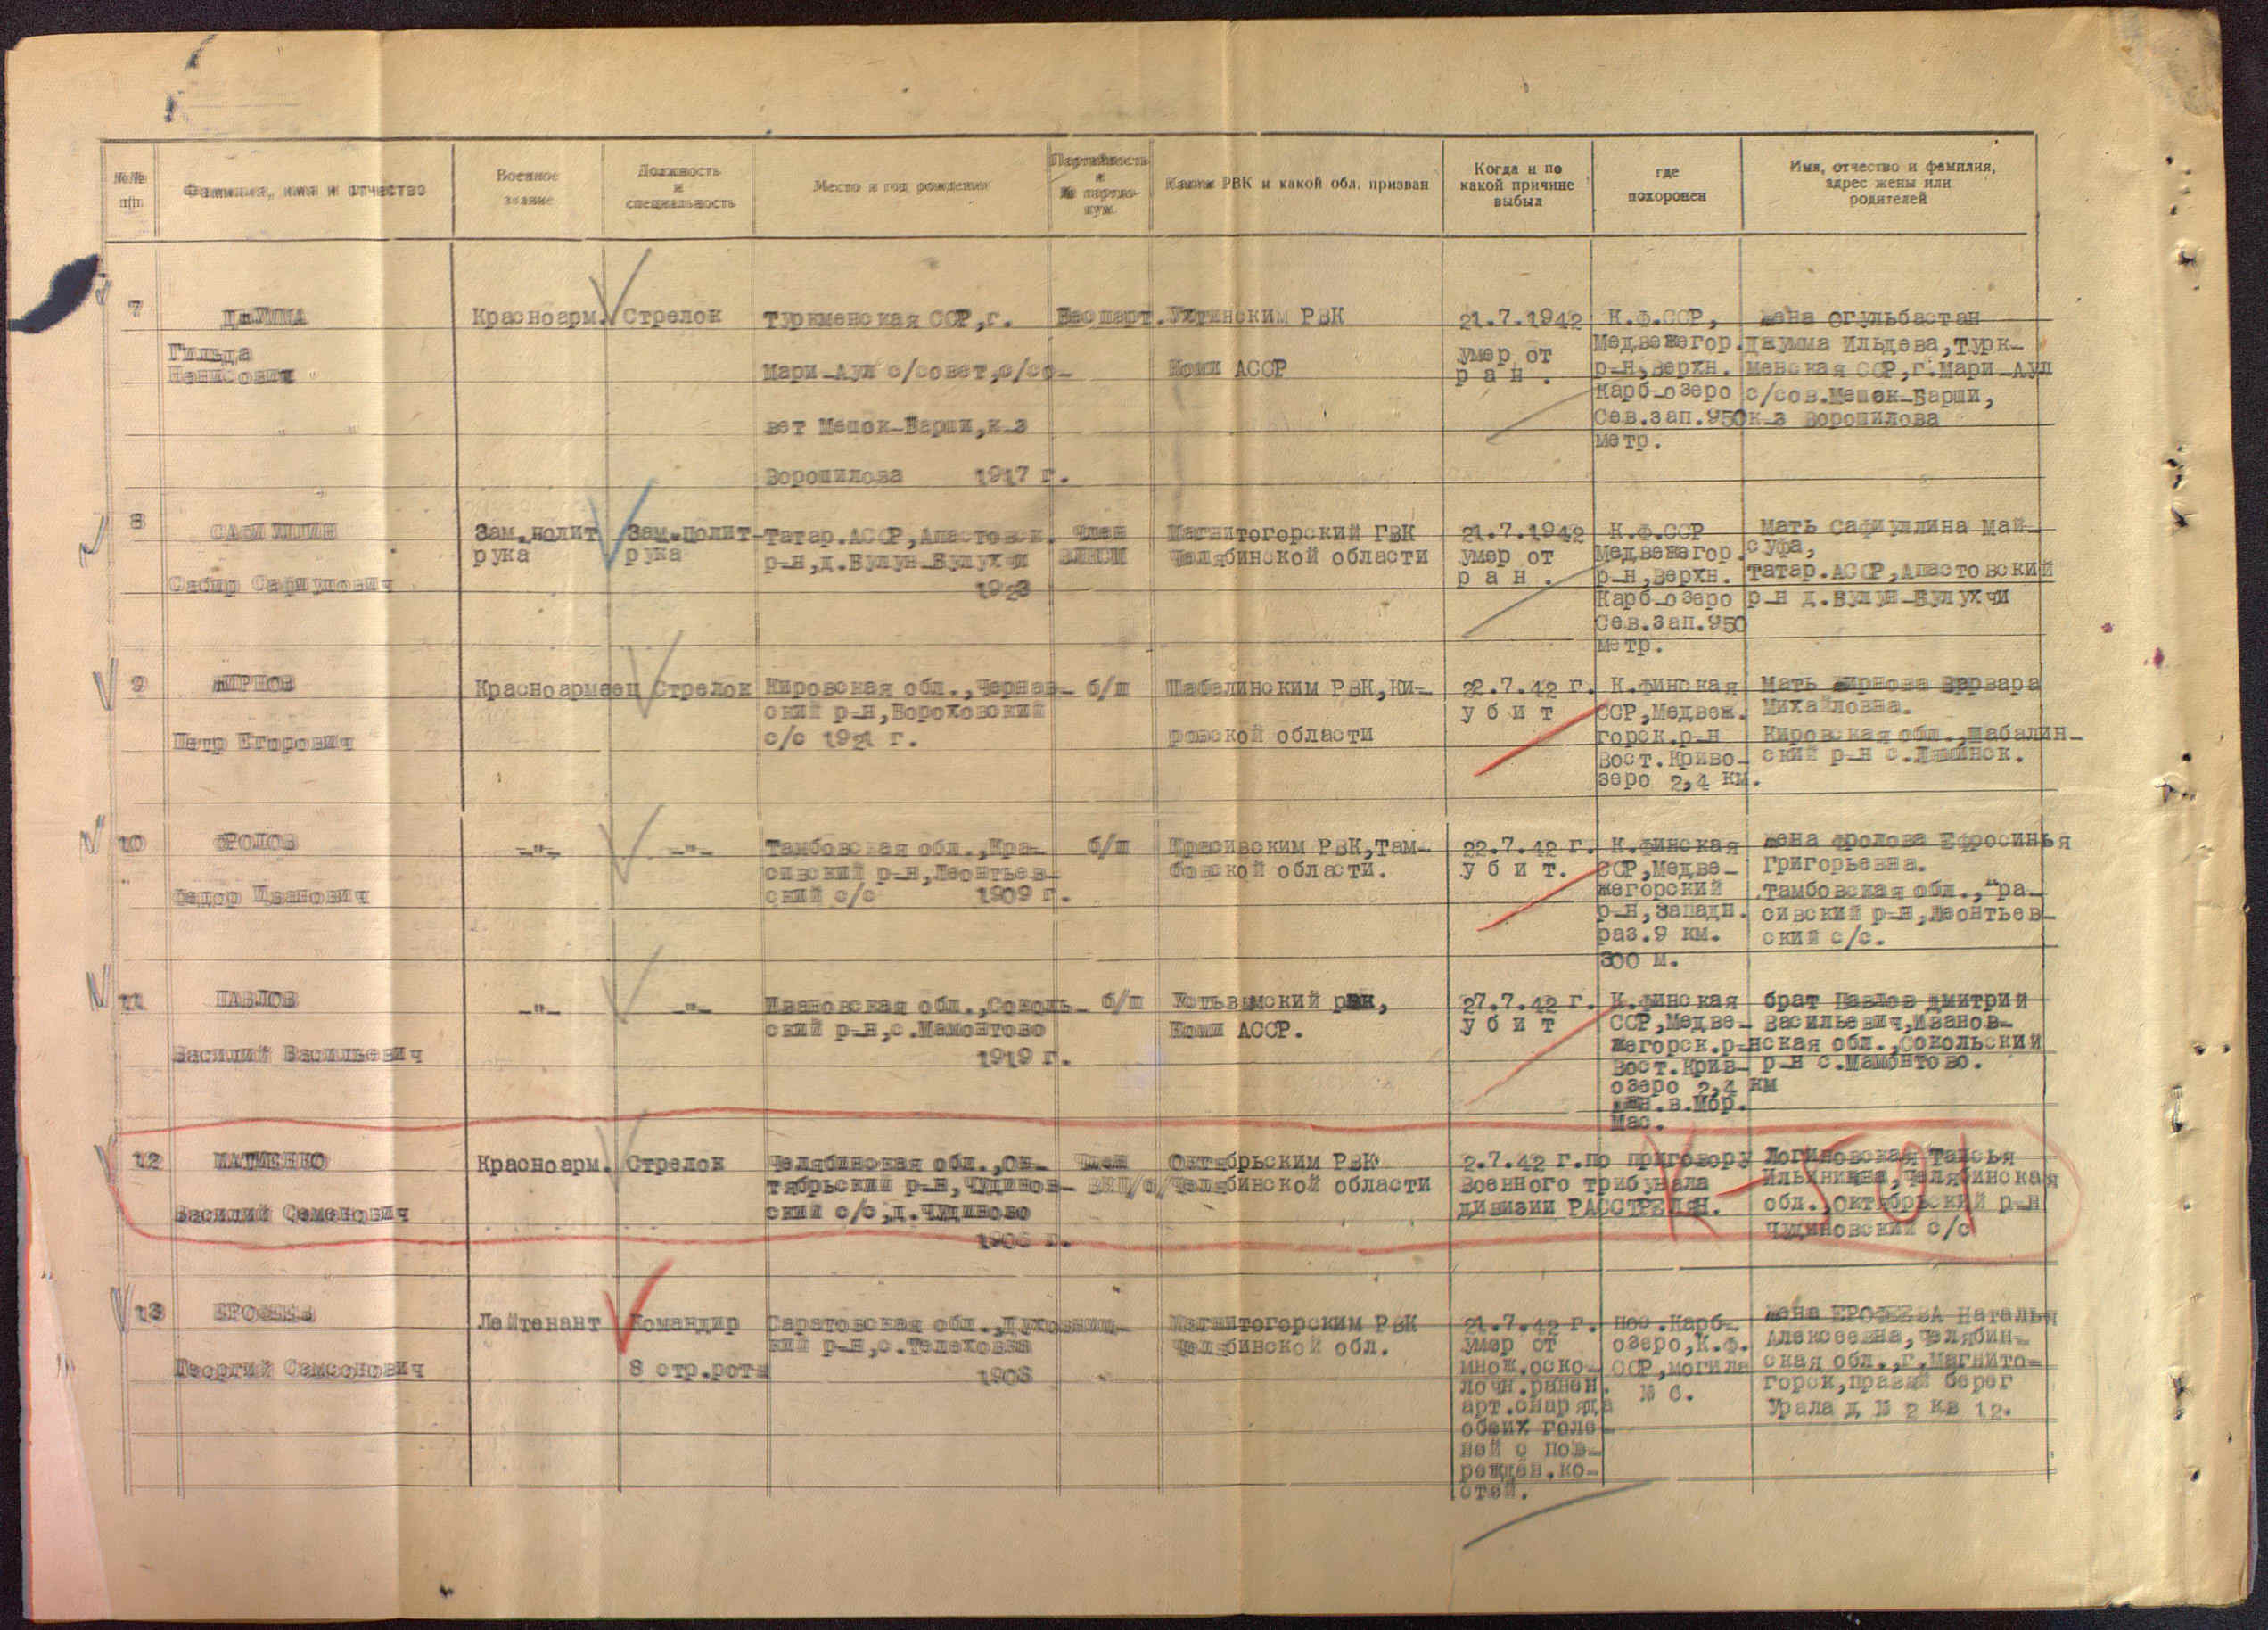 №№ п/п
Фамилия, имя и отчество
Военное звание
Должность и специальность
Место и год рождения
Партийность и № партдокум.
Каким РВК и какой обл. призван
Когда и по какой причине выбыл
где похоронен
Имя, отчество и фамилия, адрес жены или родителей
7
ДЖУММА
Гильда
Ненисович
Красноарм.
Стрелок
Туркменская ССР, г.
Мари-Аул с/совет, с/со-
вет Мешок-Барши, к-з
Ворошилова 1917 г.
Беспарт.
Ухтинским РВК
Коми АССР
21.7.1942
умер от
р а н .
К.Ф.ССР,
Медвежегор.
р-н, Верхн.
Карб-озеро
Сев.зап.950
метр.
жена Огульбастан
Джумма Ильдева, Турк-
менская ССР, г. Мари-Аул
с/сов. Мешок-Барши,
к-з Ворошилова
8
САФИУЛЛИН
Сабир
Зам.полит
рука
Зам.полит-
рука
Татар.АССР, Апастовск.
р-н, д. Булун-Булухчи
1923
член
ВЛКСМ
Магнитогорский ГВК
Челябинской области
21.7.1942
умер от
р а н .
К.Ф.ССР
Медвежегор.
р-н, Верхн.
Карб-озеро
Сев.зап.950
метр.
Мать Сафиуллина Май-
суфа,
Татар.АССР, Апастовский
р-н д. Булун-Булухчи
9
ЖИРНОВ
Петр Егорович
Красноармеец
Стрелок
Кировская обл., Чернав-
ский р-н, Вороховский
с/с 1921 г.
б/п
Шабалинским РВК, Ки-
ровской области
22.7.42 г.
у б и т
К.Финская
ССР, Медвеж.
горск.р-н
Вост.Криво-
зеро 2,4 км.
Мать Жирнова Варвара
Михайловна.
Кировская обл., Шабалин-
ский р-н с. Ленинск.
10
ФРОЛОВ
Федор Иванович
-"-
-"-
Тамбовская обл., Кра-
сивский р-н, Леонтьев-
ский с/с 1909 г.
б/п
Красивским РВК, Там-
бовской области.
22.7.42 г.
у б и т.
К.Финская
ССР, Медве-
жегорский
р-н, Западн.
раз.9 км.
300 м.
жена Фролова Ефросинья
Григорьевна.
Тамбовская обл., "ра-
сивский р-н, Леонтьев-
ский с/с.
11
ПАВЛОВ
Василий Васильевич
-"-
-"-
Ивановская обл., Соколь-
ский р-н, с. Мамонтово
1919 г.
б/п
Устьвымский рвк,
Коми АССР.
27.7.42 г.
у б и т
К.Финская
ССР, Медве-
жегорск.р-н
Вост.Крив-
озеро 2,4 км
в.Мор.
Мас.
брат Павлов Дмитрий
Васильевич, Иванов-
ская обл., Сокольский
р-н с. Мамонтово.
12
МАТВИЕНКО
Василий Семенович
Красноарм.
Стрелок
Челябинская обл., Ок-
тябрьский р-н, Чудинов-
ский с/с, д. Чудиново
1906 г.
член
ВКП/б/
Октябрьским РВК
Челябинской области
2.7.42 г. по приговору
Военного трибунала
дивизии РАССТРЕЛЯН.
Логиновская Таисья
Ильинична, Челябинская
обл., Октябрьский р-н
Чудиновский с/с
13
ЕРОФЕЕВ
Георгий Самсонович
Лейтенант
Командир
8 стр.роты
Саратовская обл., Духовниц-
кий р-н, с. Телеховка
1908
Магнитогорским РВК
Челябинской обл.
21.7.42 г.
умер от
множ.оско-
лочн.ранен.
арт.снаряда
обеих голе-
ней с пов-
режден.ко-
стей.
пос.Карб-
озеро, К.Ф.
ССР, могила
№ 6.
жена ЕРОФЕЕВА Наталья
Алексеевна, Челябин-
ская обл., г. Магнито-
горск, правый берег
Урала д № 2 кв 12.